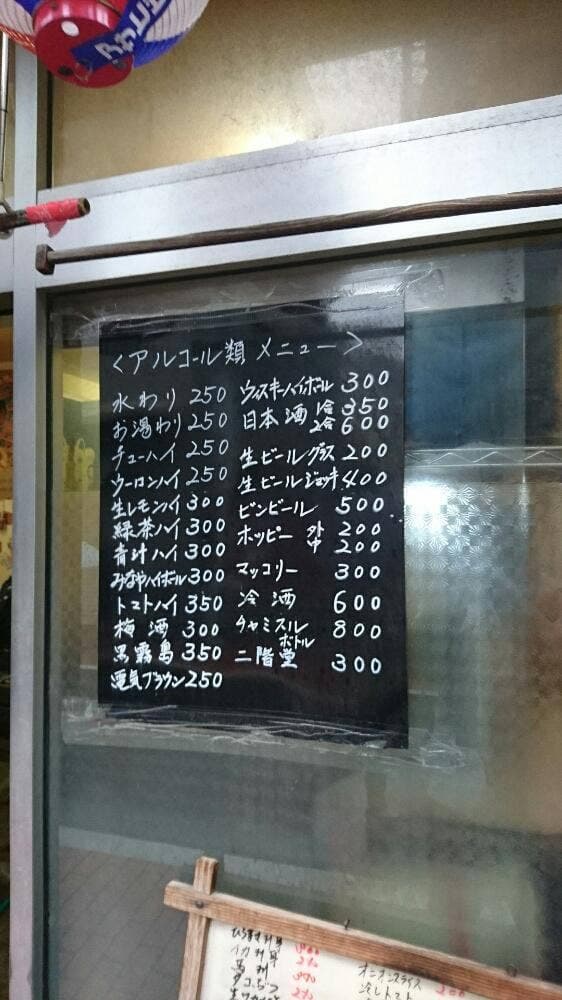 <アルコール類 メニュー>
水わり 250
お湯わり 250
チューハイ 250
ウーロンハイ 250
生レモンハイ 300
緑茶ハイ 300
青汁ハイ 300
みなやハイボール 300
トマトハイ 350
梅酒 300
黒霧島 350
電気ブラウン 250
ウィスキーハイボール 300
日本酒 1合 350
2合 600
生ビール グラス 200
生ビール ジョッキ 400
ビンビール 500
ホッピー 外 200
中 200
マッコリー 300
冷酒 600
チャミスル ボトル 800
二階堂 300
オニオンスライス
冷しトマト